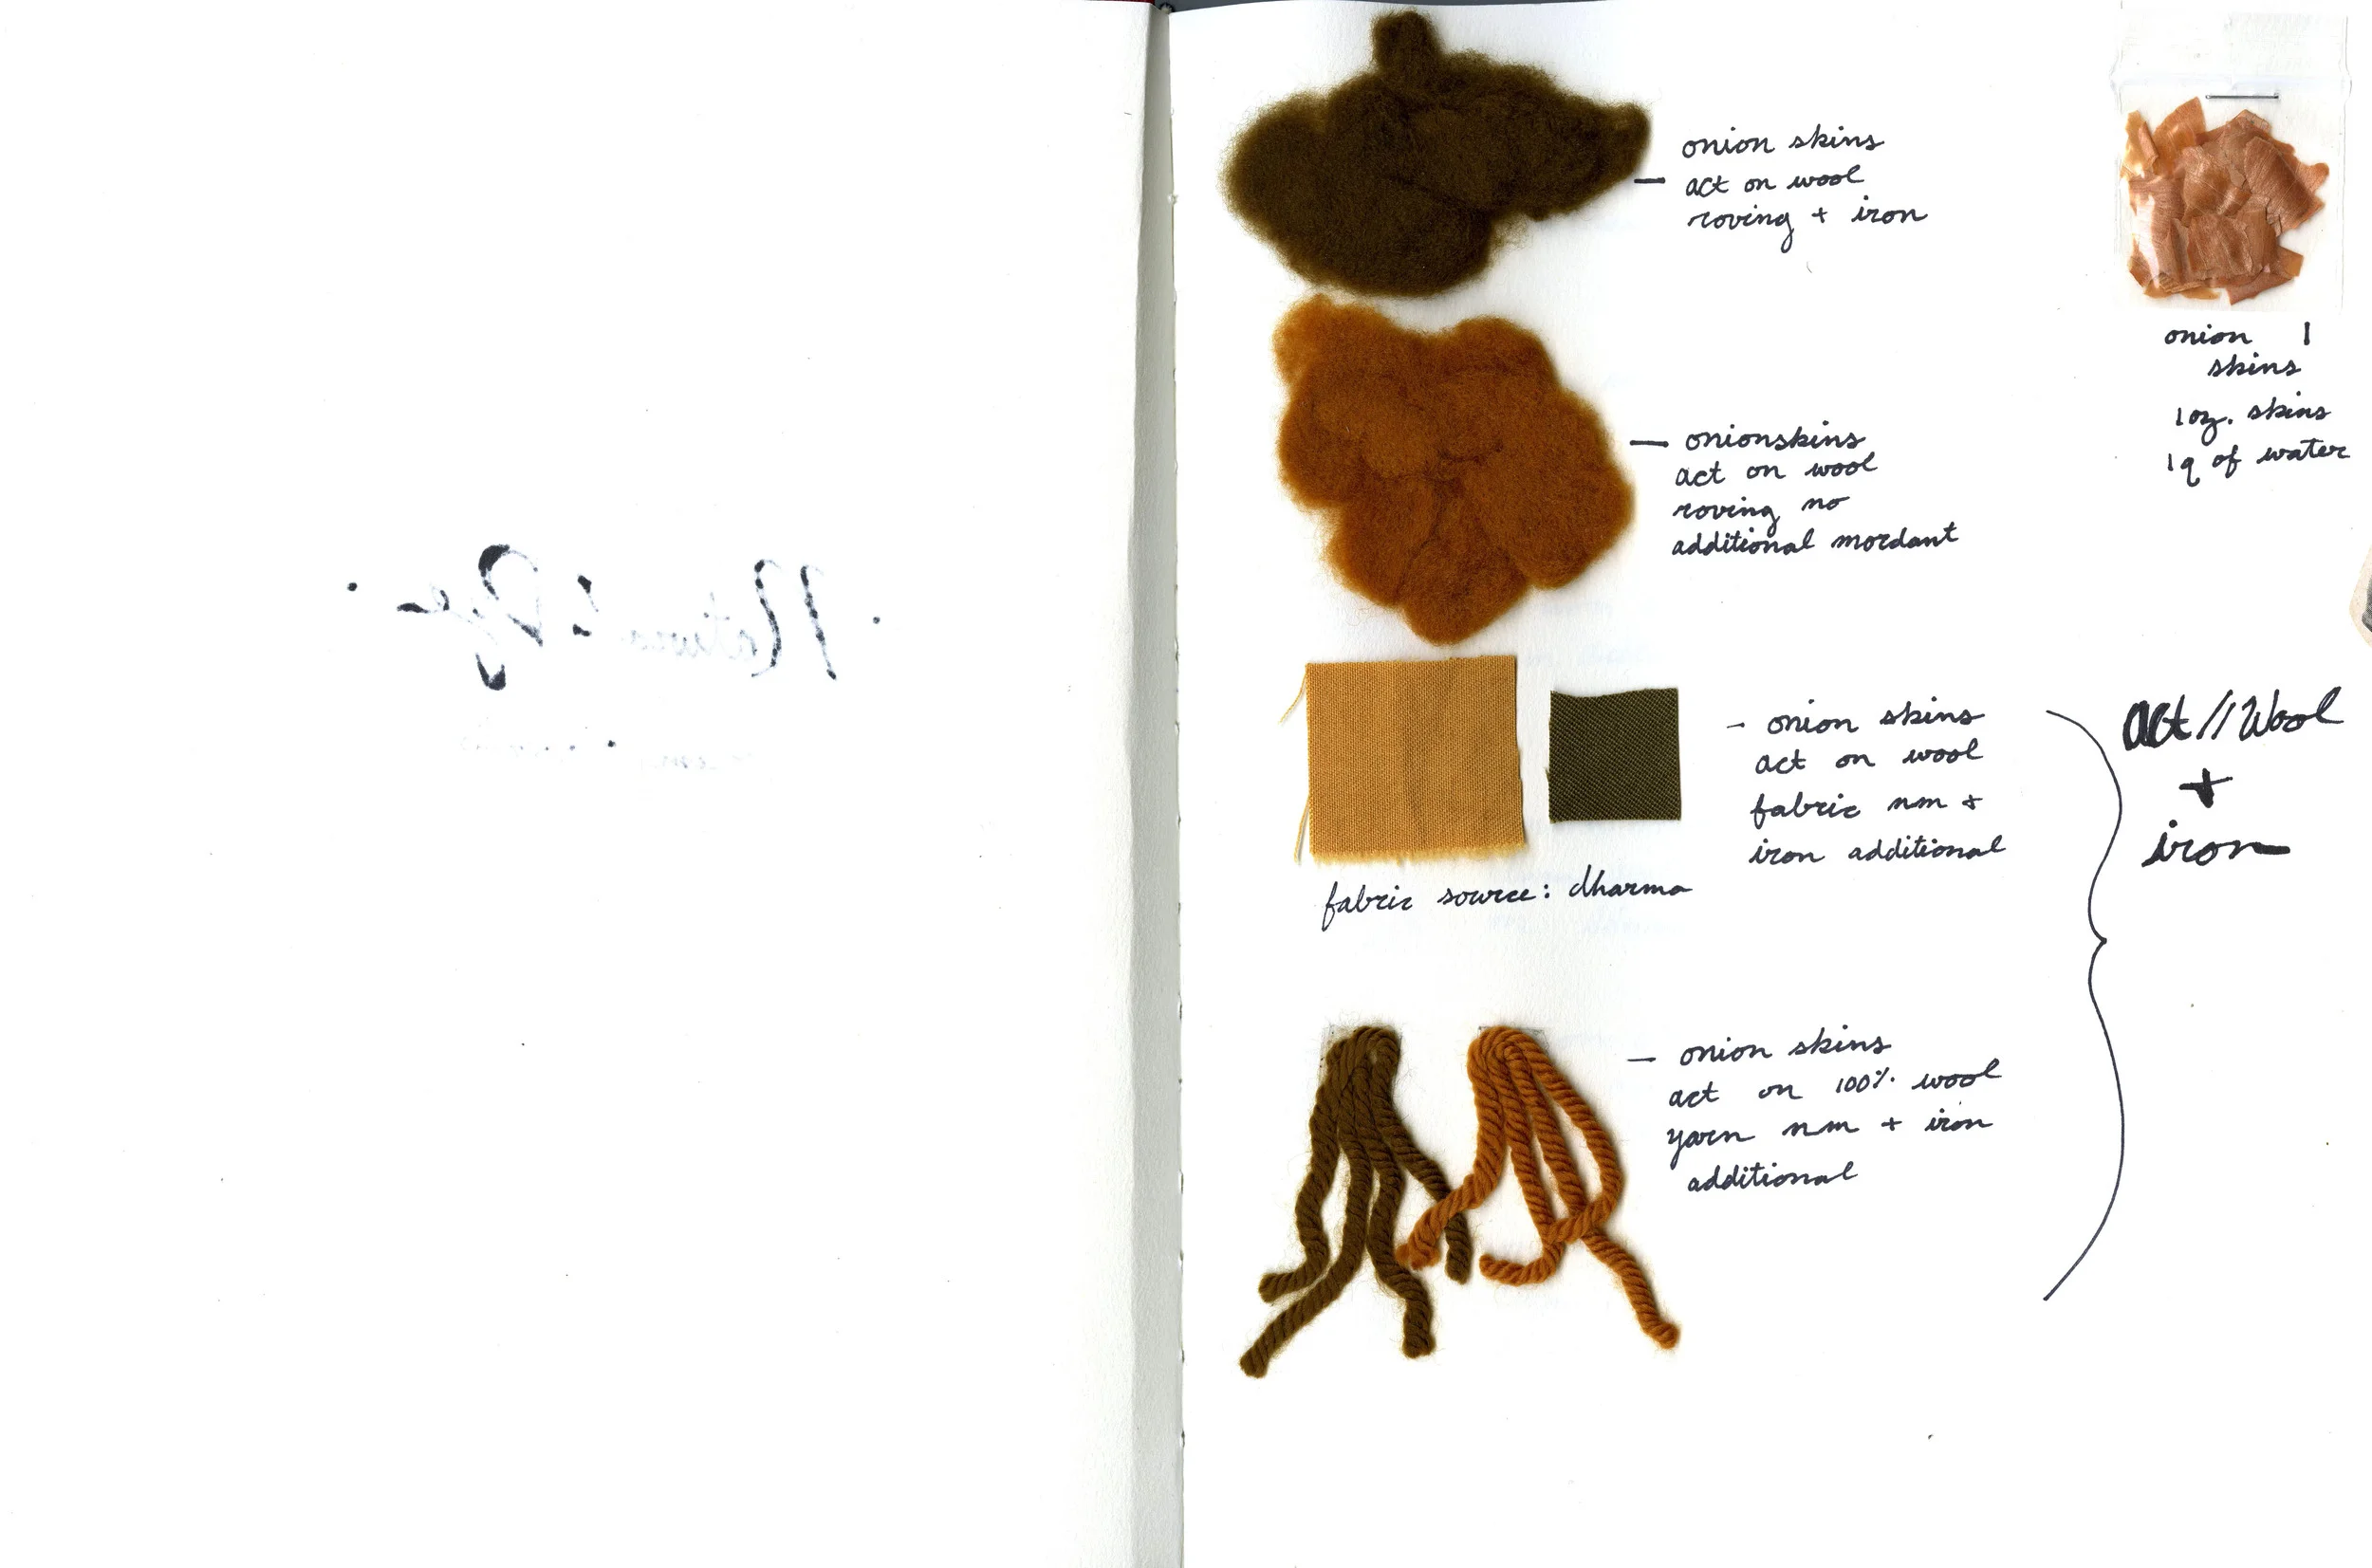 onion skins
act on wool
roving + iron
onion 1
skins
1oz. skins
1q of water
onionskins
act on wool
roving no
additional mordant
onion skins
act on wool
fabric nm +
iron additional
fabric source: dharma
act // Wool
+
iron
onion skins
act on 100% wool
yarn nm + iron
additional
Natural Dye